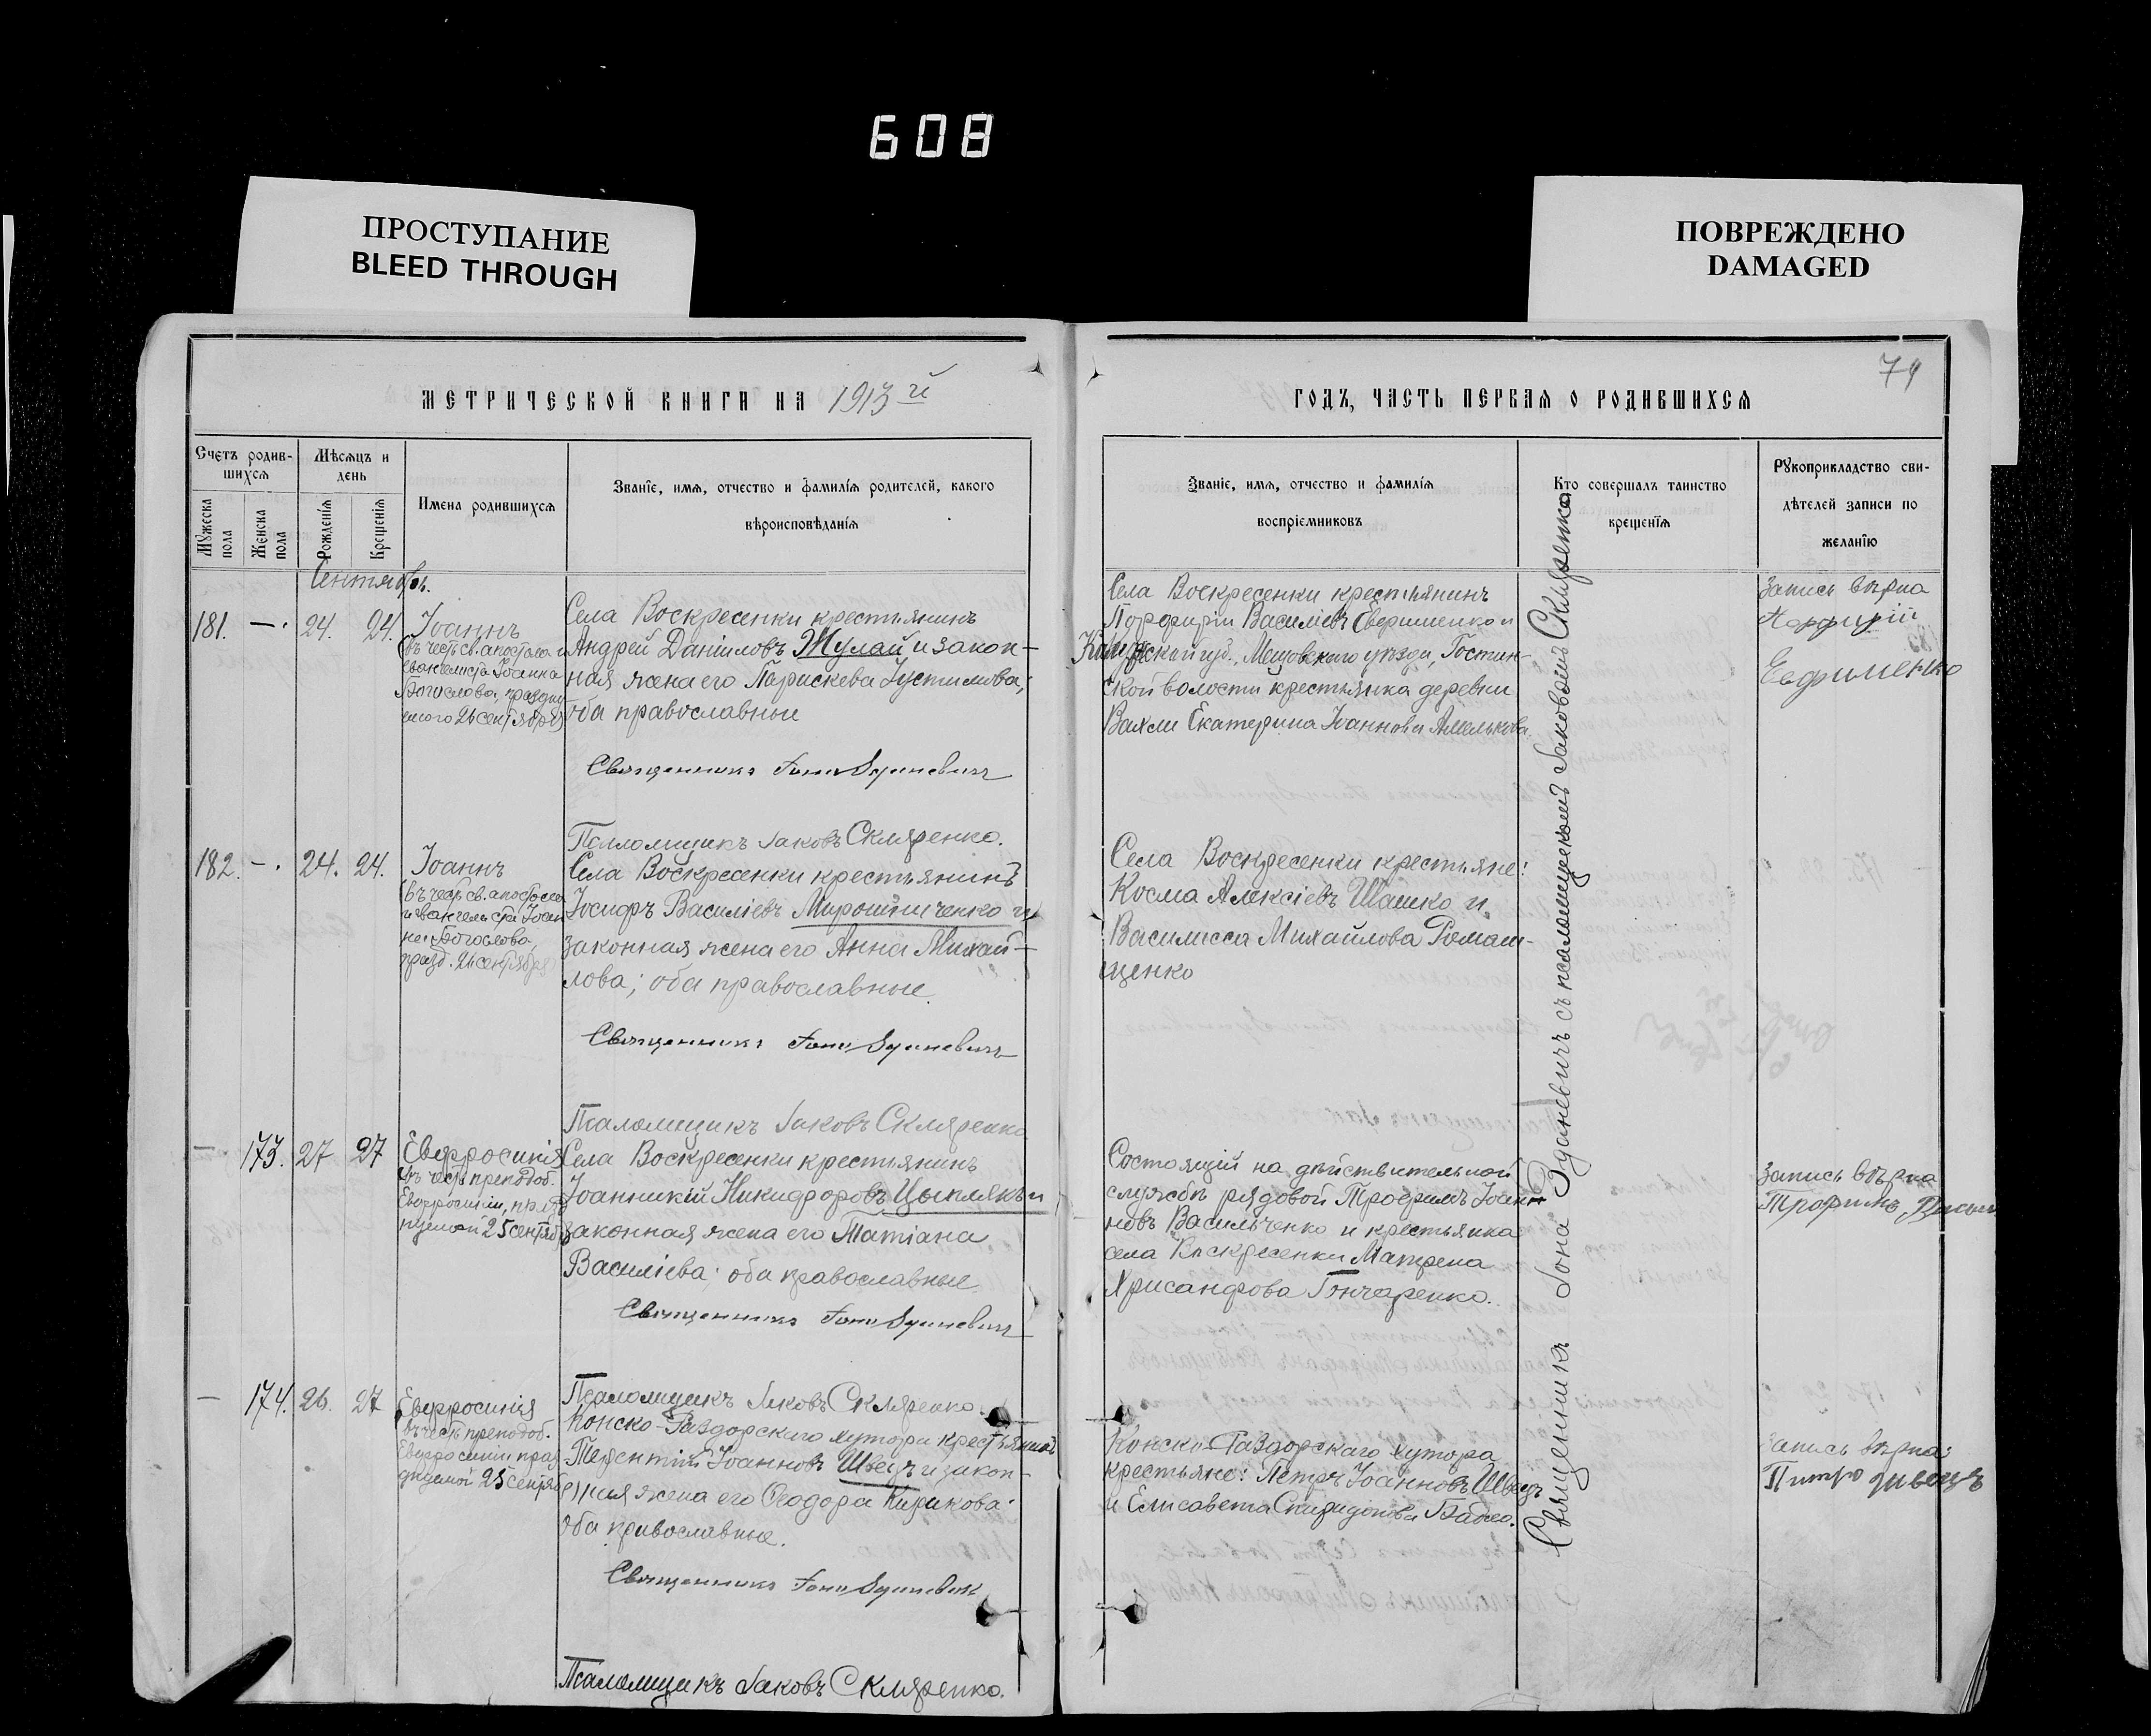 608
ПРОСТУПАНИЕ
BLEED THROUGH
ПОВРЕЖДЕНО
DAMAGED
МЕТРИЧЕСКОЙ КНИГИ НА 1913 й
Счетъ родив-
шихся
Мѣсяцъ и
день
Мужеска
пола
Женска
пола
Рожденія
Крещенія
Имена родившихся
Званіе, имя, отчество и фамилія родителей, какого
вѣроисповѣданія
Сентябрь.
181. — . 24. 24.
Іоаннъ
(въ честь св. апостола и
евангелиста Іоанна
Богослова, праздну
емого 26 сентября)
Села Воскресенки крестьянинъ
Андрей Даніиловъ Жулай и закон-
ная жена его Параскева Іустинова;
оба православные
Священникъ Іона Зданевичъ
Псаломщикъ Іаковъ Скляренко.
182. — . 24. 24.
Іоаннъ
(въ честь св. апостола
и Евангелиста Іоан
на Богослова,
празд. 26 сентября)
Села Воскресенки крестьянинъ
Іосифъ Василіевъ Мирошниченко и
законная жена его Анна Михай-
лова; оба православные.
Священникъ Іона Зданевичъ
Псаломщикъ Іаковъ Скляренко
— 173. 27 27
Евфросинія
въ честь преподоб.
Евфросиніи, празд
нуемой 25 сентяб
Села Воскресенки крестьянинъ
Іоанникій Никифоровъ Цыплякъ и
законная жена его Татіана
Василіева; оба православные.
Священникъ Іона Зданевичъ
Псаломщикъ Іаковъ Скляренко.
— 174. 26. 27
Евфросинія
въ честь преподоб.
Евфросиніи праз
днуемой 25 сентяб
Конско-Раздорскаго хутора крестьянинъ
Терентій Іоанновъ Швецъ и закон-
ная жена его Ѳеодора Кирикова;
оба православные.
Священникъ Іона Зданевичъ
Псаломщикъ Іаковъ Скляренко.
74
ГОДЪ, ЧАСТЬ ПЕРВАЯ О РОДИВШИХСЯ
Званіе, имя, отчество и фамилія
воспріемниковъ
Кто совершалъ таинство
крещенія
Рукоприкладство сви-
дѣтелей записи по
желанію
Села Воскресенки крестьянинъ
Порфирій Василіевъ и
Калужской губ., Мещовскаго уѣзда,
ской волости крестьянка деревни
Екатерина Іоаннова Амелькова.
Запись вѣрна
Порфирій
Евфименко
Села Воскресенки крестьяне:
Косма Алексіевъ Шашко и
Василисса Михайлова Ромащ-
щенко
Состоящій на дѣйствительной
службѣ рядовой Трофимъ Іоан-
новъ Васильченко и крестьянка
села Воскресенки Матрена
Хрисанфова Гончаренко.
Запись вѣрна
Трофимъ
Конско-Раздорскаго хутора
крестьяне: Петръ Іоанновъ Швецъ
и Елисавета Спиридонова Бабко.
Запись вѣрна:
Питро Швецъ
Священникъ Іона Зданевичъ съ псаломщикомъ Іаковымъ Скляренко